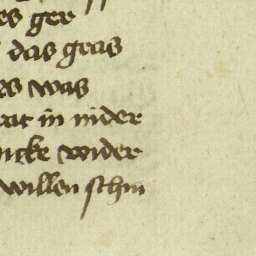 es ger
das gras
es was
rat in nider
ncke wider
willen schin